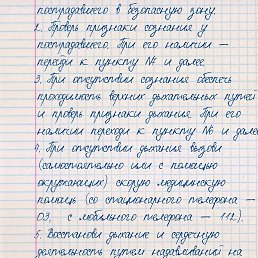 пострадавшего в безопасную зону.
2. Проверь признаки сознания у
пострадавшего. При его наличии —
переходи к пункту № и далее.
3. При отсутствии сознания обеспечь
проходимость верхних дыхательных путей
и проверь признаки дыхания. При его
наличии переходи к пункту № и далее.
4. При отсутствии дыхания вызови
(самостоятельно или с помощью
окружающих) скорую медицинскую
помощь (со стационарного телефона —
03, с мобильного телефона — 112).
5. Восстанови дыхание и сердечную
деятельность путем надавливаний на